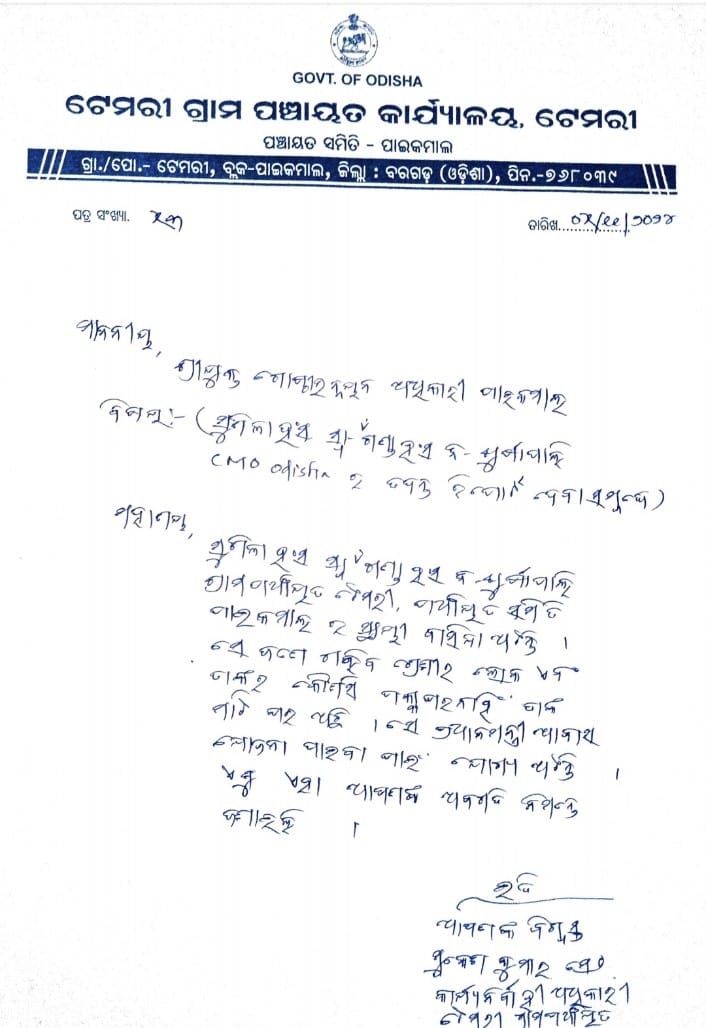 GOVT. OF ODISHA
ଟେମରୀ ଗ୍ରାମ ପଞ୍ଚାୟତ କାର୍ଯ୍ୟାଳୟ, ଟେମରୀ
ପଞ୍ଚାୟତ ସମିତି - ପାଇକମାଲ
ଗ୍ରା./ପୋ.- ଟେମରୀ, ବ୍ଲକ-ପାଇକମାଲ, ଜିଲ୍ଲା : ବରଗଡ଼ (ଓଡ଼ିଶା), ପିନ.-୭୬୮୦୩୯
ପତ୍ର ସଂଖ୍ୟା.
ତାରିଖ.
ମାନନୀୟ,
ଶ୍ରୀଯୁକ୍ତ ଗୋଷ୍ଠୀଉନ୍ନୟନ ଅଧିକାରୀ ପାଇକମାଲ
ବିଷୟ:- (ସୁଶିଲା ହଂସ
CMO odisha ର ତଦନ୍ତ ରିପୋର୍ଟ ଦେବା ସମ୍ବନ୍ଧେ)
ମହାଶୟ,
ସୁଶିଲା ହଂସ
ଗ୍ରାମପଞ୍ଚାୟତ ଟେମରୀ, ପଞ୍ଚାୟତ ସମିତି
ପାଇକମାଲ ର ସ୍ଥାୟୀ ବାସିନ୍ଦା ଅଟନ୍ତି ।
ସେ ଜଣେ ଗରିବ ଶ୍ରେଣୀର ଲୋକ ଏବଂ
ତାଙ୍କର କୌଣସି ପକ୍କାଘରନାହିଁ ତାଙ୍କ
ମାଟି ଘର ଅଛି । ସେ ପ୍ରଧାନମନ୍ତ୍ରୀ ଆବାସ
ଯୋଜନା ପାଇବା ପାଇଁ ଯୋଗ୍ୟ ଅଟନ୍ତି ।
ଏଣୁ ଏହା ଆପଣଙ୍କ ଅବଗତି ନିମନ୍ତେ
ଜଣାଇଲି ।
ଇତି
ଆପଣଙ୍କ ବିଶ୍ୱସ୍ତ
କୁମାର
କାର୍ଯ୍ୟନିର୍ବାହୀ ଅଧିକାରୀ
ଟେମରୀ ଗ୍ରାମପଞ୍ଚାୟତ